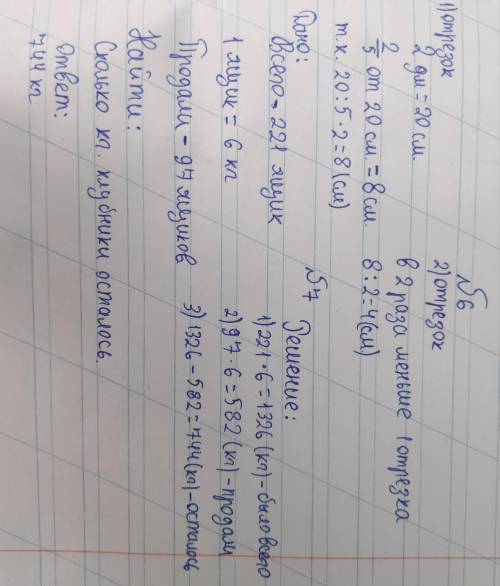 №6
1) отрезок
2 дм = 20 см.
2/5 от 20 см. = 8 см.
т.к. 20:5·2=8(см)
2) отрезок
в 2 раза меньше 1 отрезка
8:2=4(см)
№7
Дано:
Всего - 221 ящик
1 ящик = 6 кг
Продали - 97 ящиков
Найти:
Сколько кг. клубники осталось.
Решение:
1) 221·6=1326(кг)-было всего
2) 97·6=582(кг)-продали
3) 1326-582=744(кг)-осталось
Ответ:
744 кг